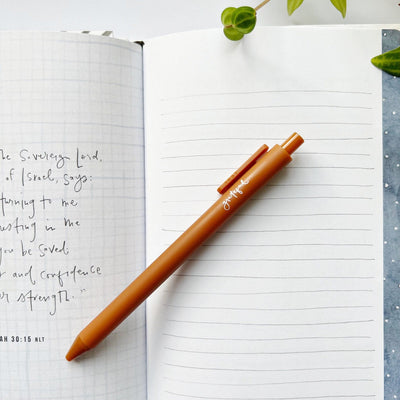 he Sovereign Lord,
of Israel, says:
turning to me
esting in me
you be saved.
and confidence
er strength."
AH 30:15 NLT
grateful